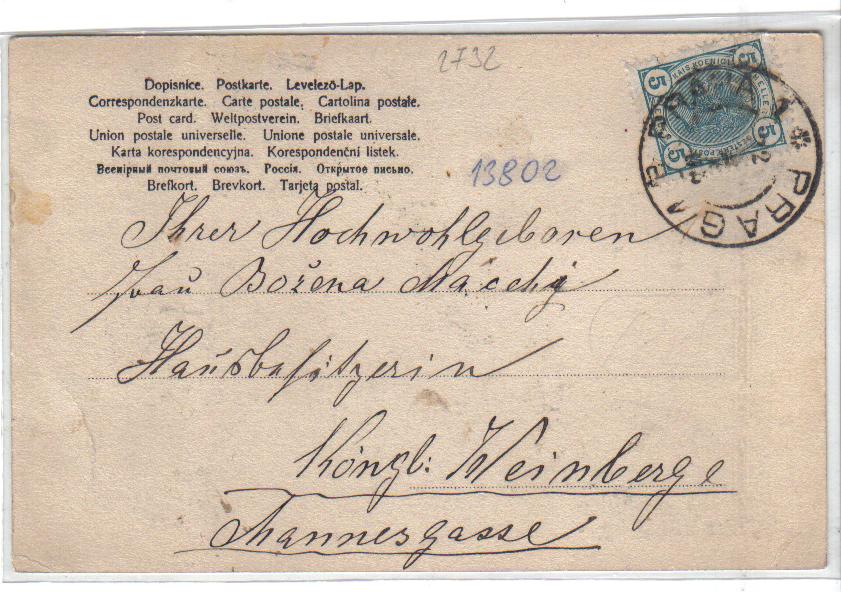 2732
Dopisnice. Postkarte. Levelező-Lap.
Correspondenzkarte. Carte postale. Cartolina postale.
Post card. Weltpostverein. Briefkaart.
Union postale universelle. Unione postale universale.
Karta korespondencyjna. Korespondenční listek.
Всемірный почтовый союзъ. Россія. Открытое письмо.
Brefkort. Brevkort. Tarjeta postal.
13802
5 5
KAIS. KOENIGL.
5 5
PRAHA 1
PRAG 1
Ihrer Hochwohlgeboren
Frau Božena
Hausbesitzerin
Köngl: Weinberge
Mannesgasse